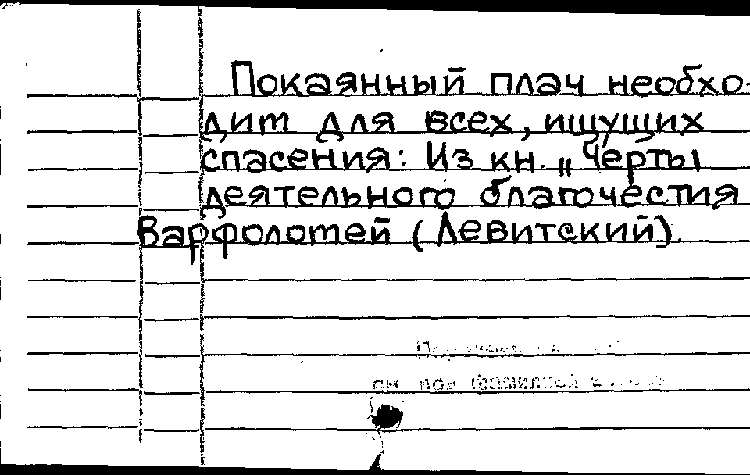 Покаянный плач необхо-
дим для всех, ищущих
спасения: Из кн. „Черты
деятельного благочестия
Варфоломей (Левитский).